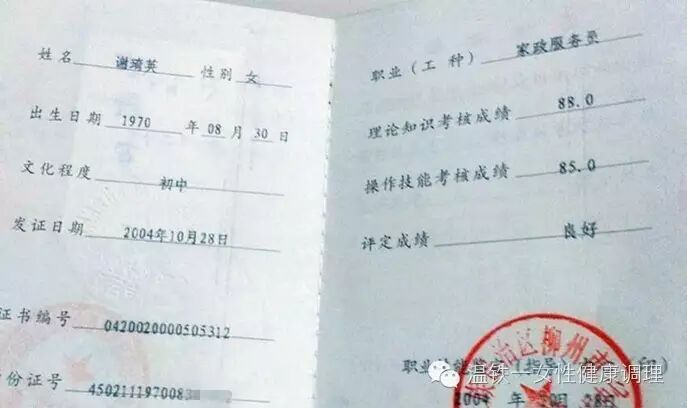 姓名 谢琦英 性别 女
出生日期 1970 年 08 月 30 日
文化程度 初中
发证日期 2004年10月28日
证书编号 0420020000505312
份证号 4502111970083
职业（工种） 家政服务员
理论知识考核成绩 88.0
操作技能考核成绩 85.0
评定成绩 良好
治区柳州市
职业
印）
2004 年
日
温铁—女性健康调理